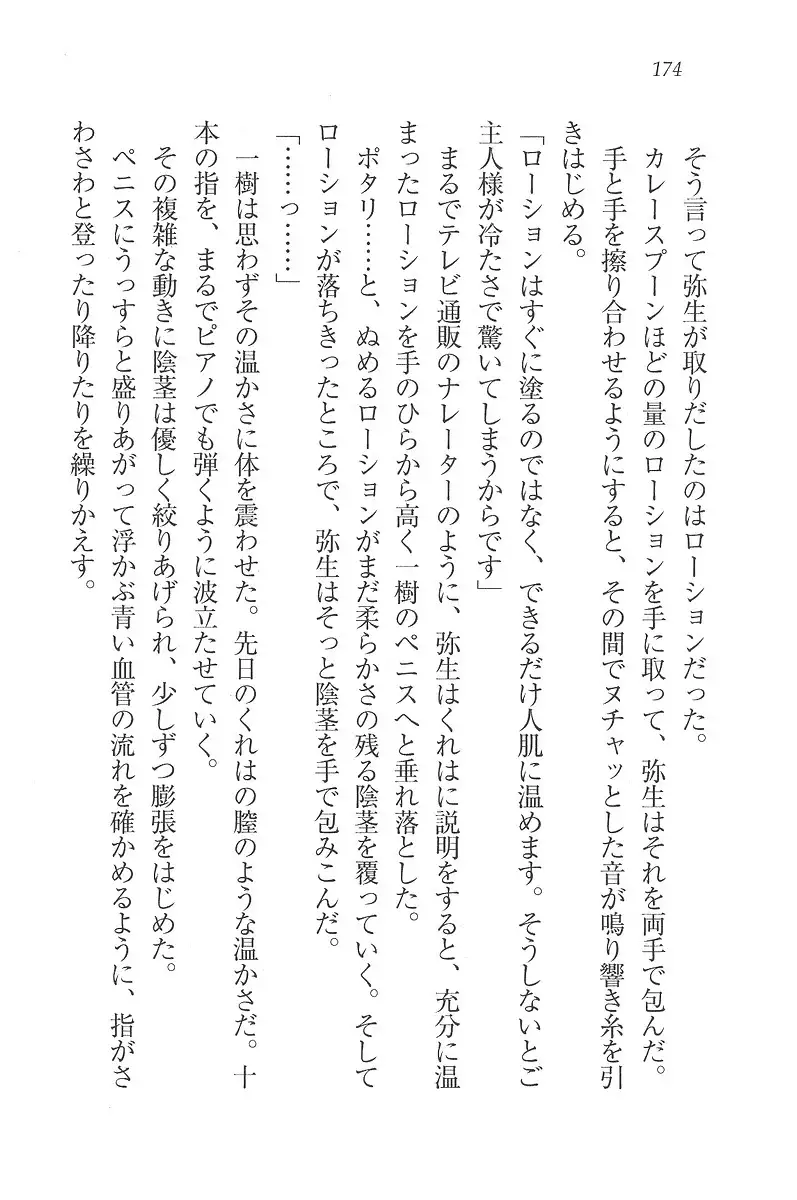 174
そう言って弥生が取りだしたのはローションだった。
カレースプーンほどの量のローションを手に取って、弥生はそれを両手で包んだ。
手と手を擦り合わせるようにすると、その間でヌチャッとした音が鳴り響き糸を引
きはじめる。
「ローションはすぐに塗るのではなく、できるだけ人肌に温めます。そうしないとご
主人様が冷たさで驚いてしまうからです」
まるでテレビ通販のナレーターのように、弥生はくれはに説明をすると、充分に温
まったローションを手のひらから高く一樹のペニスへと垂れ落とした。
ポタリ……と、ぬめるローションがまだ柔らかさの残る陰茎を覆っていく。そして
ローションが落ちきったところで、弥生はそっと陰茎を手で包みこんだ。
「……っ……」
一樹は思わずその温かさに体を震わせた。先日のくれはの膣のような温かさだ。十
本の指を、まるでピアノでも弾くように波立たせていく。
その複雑な動きに陰茎は優しく絞りあげられ、少しずつ膨張をはじめた。
ペニスにうっすらと盛りあがって浮かぶ青い血管の流れを確かめるように、指がさ
わさわと登ったり降りたりを繰りかえす。